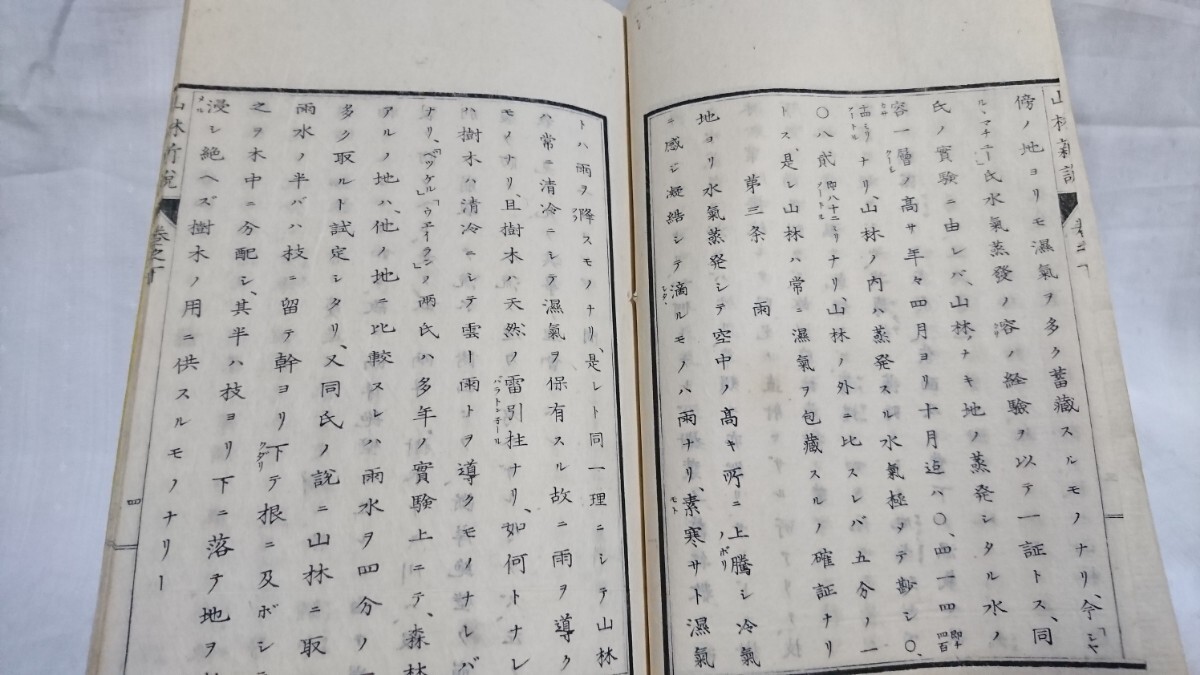 傍ノ地ヨリモ濕氣ヲ多ク蓄藏スルモノナリ、今「シヤ
ル、マチユー」氏水氣蒸發ノ容ノ経驗ヲ以テ一証トス、同
氏ノ實驗ニ由レバ、山林ノナキ地ノ蒸発シタル水ノ
容一層ノ高サ年々四月ヨリ十月迠ハ〇、四一四 即チ四百
ナリ、山林ノ内ハ蒸発スル水氣極タテ尠シ〇、
〇八貳 即八十二ミリメートル ナリ、山林ノ外ニ比スレバ五分ノ一
トス、是レ山林ハ常ニ濕氣ヲ包藏スルノ確証ナリ
第三条 雨
地ヨリ水氣蒸発シテ空中ノ高キ所ニ上騰シ冷氣
ニ感シ凝結シテ滴ルモノハ雨ナリ、素寒サト濕氣
トハ雨ヲ降スモノナリ、是レト同一理ニシテ山林
ハ常ニ清冷ニシテ濕氣ヲ保有スル故ニ雨ヲ導ク
モノナリ、且樹木ハ天然ノ雷引柱ナリ、如何トナレ
ハ樹木ハ清冷ニシテ雲ー雨トヲ導クモノナレバ
ナリ、「ベツケル」「ウエイラン」ノ兩氏ハ多年ノ實驗上ニテ、森林
アルノ地ハ、他ノ地ニ比較スレハ雨水ヲ四分ノ一
多ク取ルト試定シタリ、又同氏ノ説ニ山林ニ取
雨水ノ半バハ技ニ留テ幹ヨリ下テ根ニ及ボシ
之ヲ木中ニ分配シ、其半ハ技ヨリ下ニ落テ地ヲ
浸シ絶ヘズ樹木ノ用ニ供スルモノナリー
山林竹説 巻之下 四